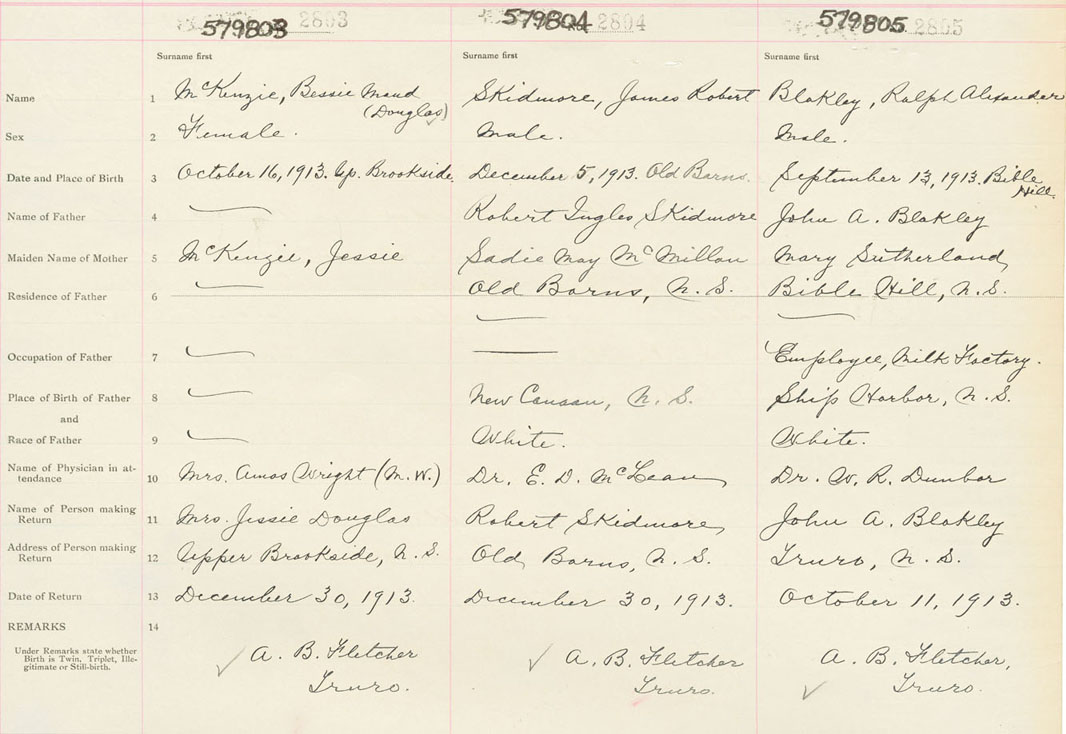 579803 2803
Surname first
579804 No. 2804
Surname first
579805 2805
Surname first
Name 1 McKenzie, Bessie Maud
(Douglas)
Skidmore, James Robert
Blakley, Ralph Alexander
Sex 2 Female.
Male.
Male.
Date and Place of Birth 3 October 16, 1913. Up. Brookside.
December 5, 1913. Old Barns.
September 13, 1913. Bible
Hill.
Name of Father 4
Robert Ingles Skidmore
John A. Blakley
Maiden Name of Mother 5 McKenzie, Jessie
Sadie May McMillan
Mary Sutherland
Residence of Father 6
Old Barns, N. S.
Bible Hill, N. S.
Occupation of Father 7
Employee, Milk Factory.
Place of Birth of Father 8
New Canaan, N. S.
Ship Harbor, N. S.
and
Race of Father 9
White.
White.
Name of Physician in at-
tendance 10 Mrs. Amos Wright (M. W.)
Dr. E. D. McLean
Dr. W. R. Dunbar
Name of Person making
Return 11 Mrs. Jessie Douglas
Robert Skidmore
John A. Blakley
Address of Person making
Return 12 Upper Brookside, N. S.
Old Barns, N. S.
Truro, N. S.
Date of Return 13 December 30, 1913.
December 30, 1913.
October 11, 1913.
REMARKS 14
Under Remarks state whether
Birth is Twin, Triplet, Ille-
gitimate or Still-birth.
A. B. Fletcher
Truro.
A. B. Fletcher
Truro.
A. B. Fletcher,
Truro.